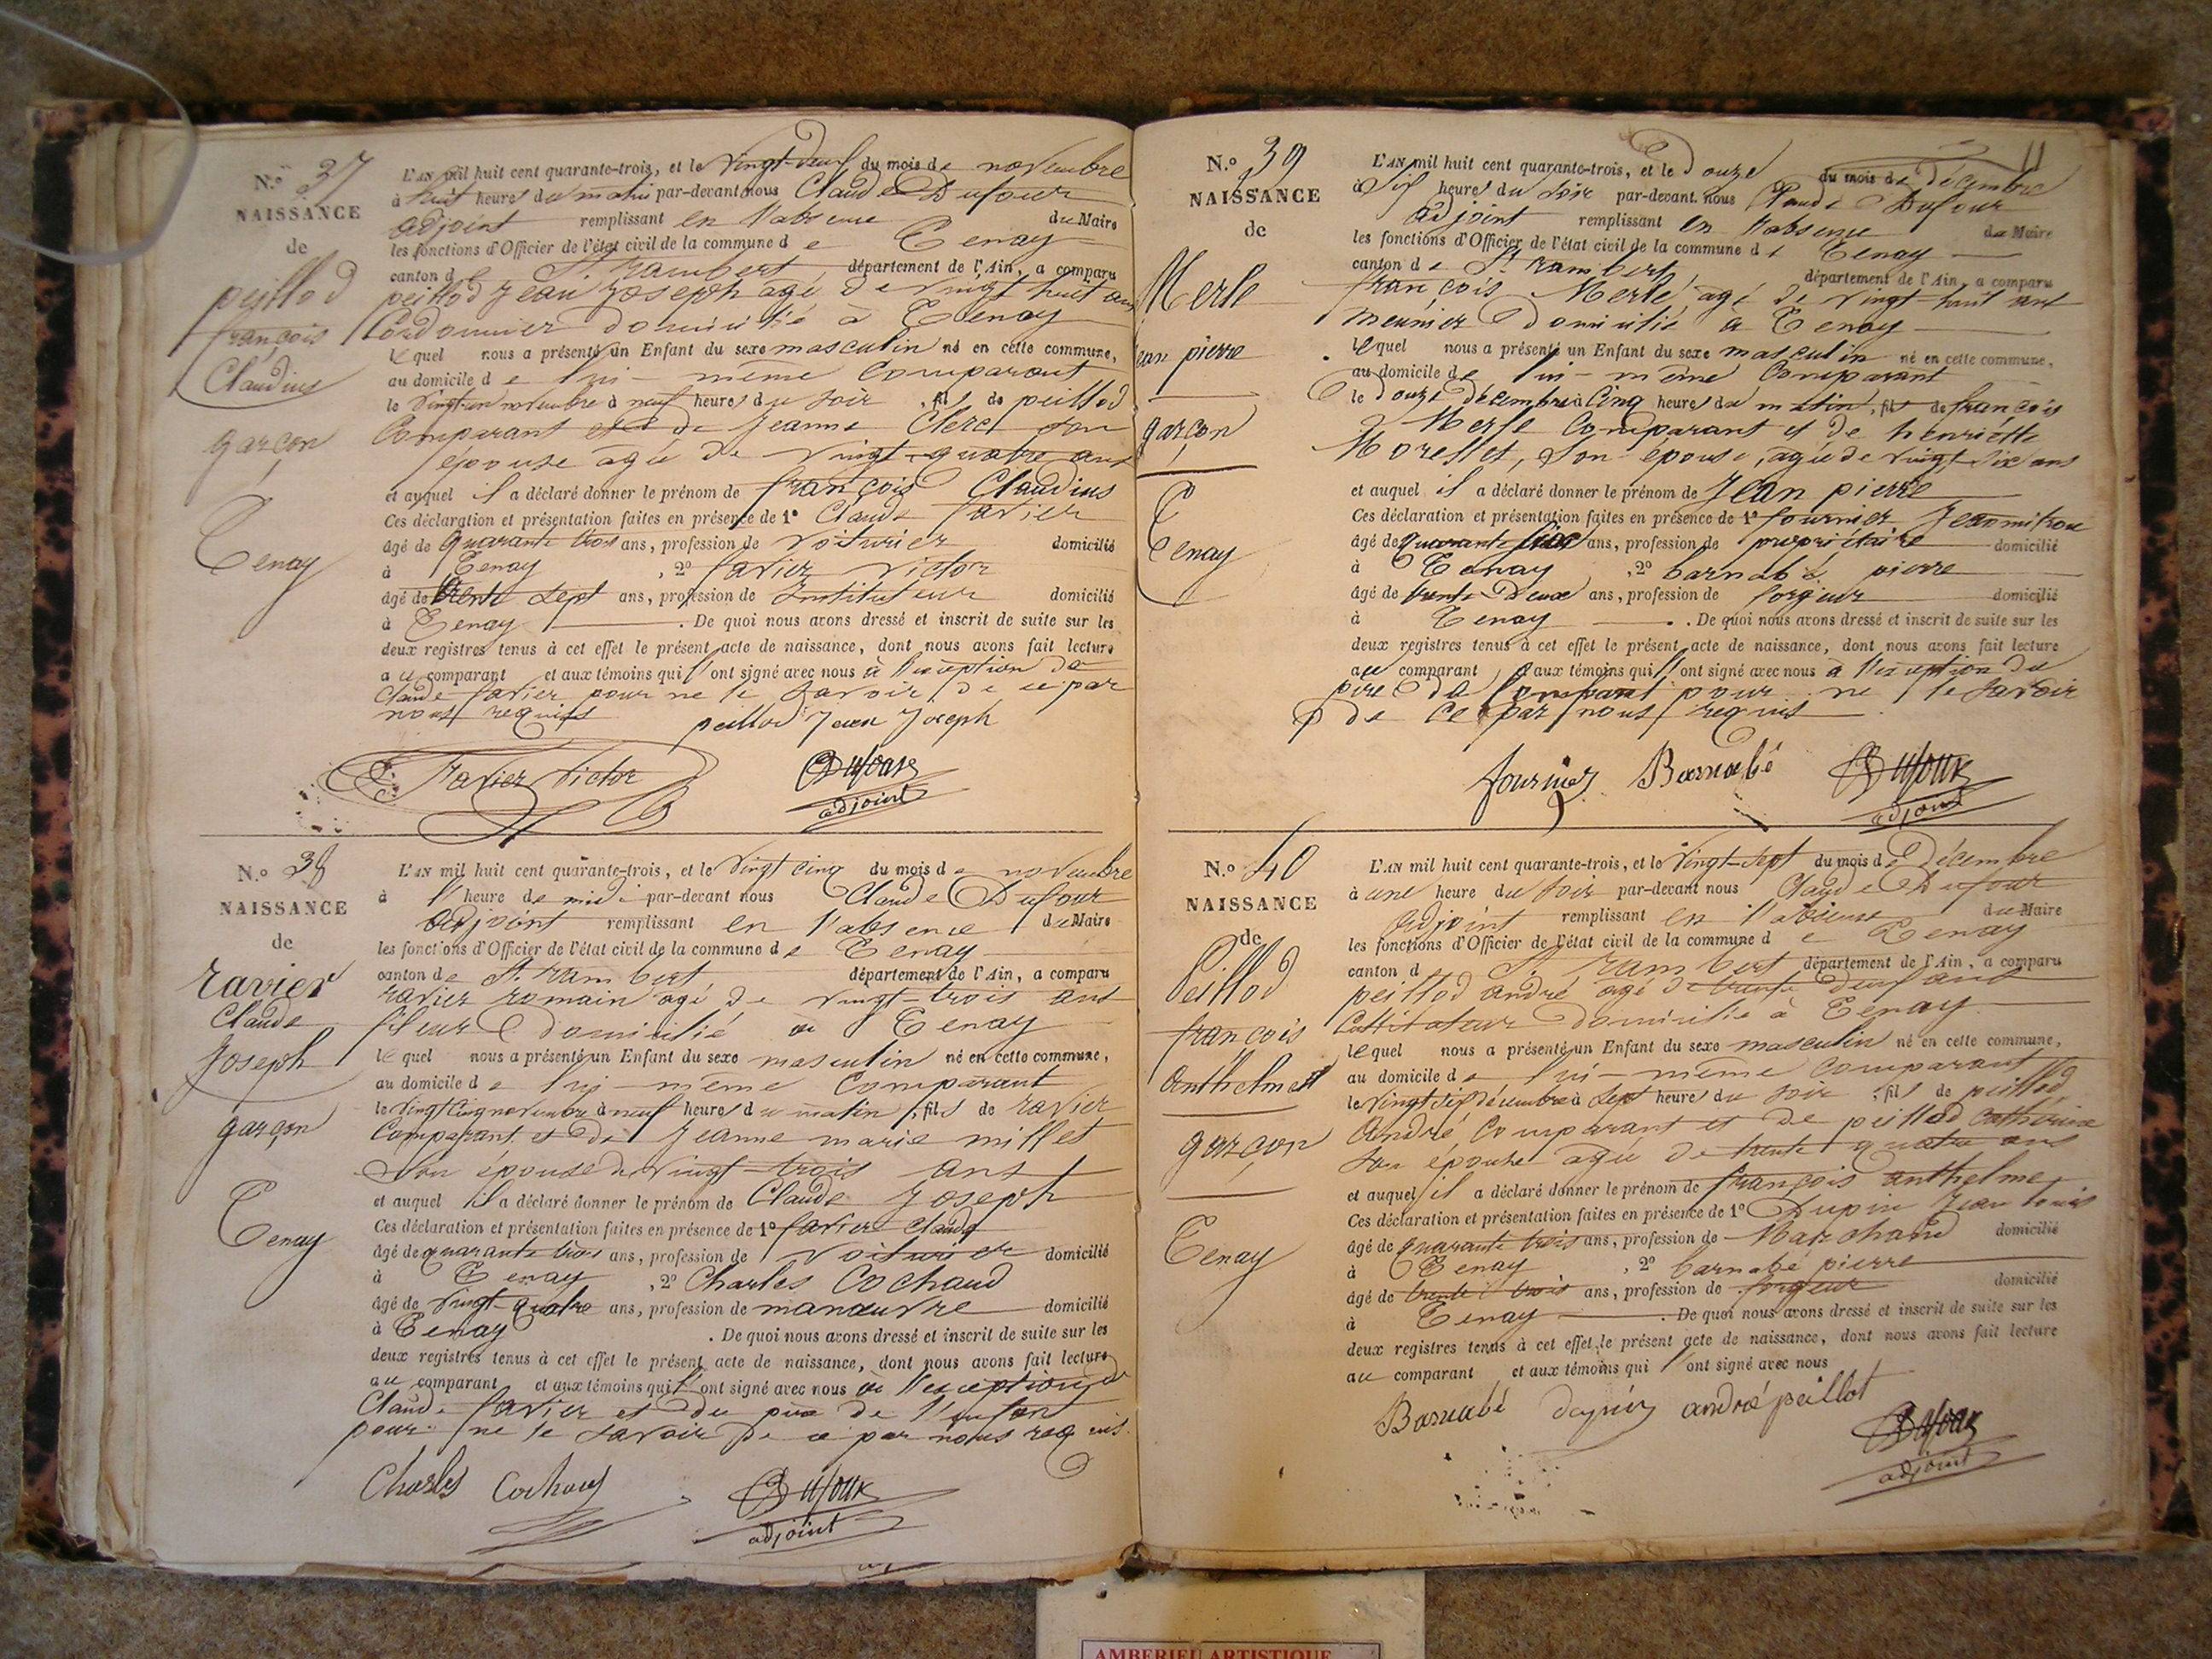 N.o 37
NAISSANCE
de
peillod
françois
Claudius
garçon
Tenay
L'AN mil huit cent quarante-trois, et le Vingt-deux du mois de novembre
à huit heures du matin par-devant nous Claude Dufour
adjoint remplissant en l'absence du Maire
les fonctions d'Officier de l'état civil de la commune de Tenay
canton de St. rambert département de l'Ain, a comparu
peillod Jean Joseph agé de vingt huit ans
Cordonnier domicilié à Tenay
lequel nous a présenté un Enfant du sexe masculin né en cette commune,
au domicile de lui-même Comparant
le Vingt-un novembre à neuf heures du soir, fils de peillod
Comparant et de Jeanne Clerc son
épouse agée de vingt-quatre ans
et auquel il a déclaré donner le prénom de françois Claudius
Ces déclaration et présentation faites en présence de 1º Claude favier
âgé de quarante trois ans, profession de Voiturier domicilié
à Tenay, 2º favier Victor
âgé de trente sept ans, profession de Instituteur domicilié
à Tenay. De quoi nous avons dressé et inscrit de suite sur les
deux registres tenus à cet effet le présent acte de naissance, dont nous avons fait lecture
au comparant et aux témoins qui l'ont signé avec nous à l'exception de
Claude favier pour ne le savoir de ce par
nous requis peillod Jean Joseph
favier Victor Dufour
adjoint
N.o 38
NAISSANCE
de
ravier
Claude
Joseph
garçon
Tenay
L'AN mil huit cent quarante-trois, et le Vingt cinq du mois de novembre
à l'heure de midi par-devant nous Claude Dufour
adjoint remplissant en l'absence du Maire
les fonctions d'Officier de l'état civil de la commune de Tenay
canton de St. rambert département de l'Ain, a comparu
ravier romain agé de vingt-trois ans
fileur domicilié à Tenay
lequel nous a présenté un Enfant du sexe masculin né en cette commune,
au domicile de lui-même Comparant
le Vingt Cinq novembre à neuf heures du matin, fils de ravier
Comparant et de Jeanne marie millet
son épouse de vingt-trois ans
et auquel il a déclaré donner le prénom de Claude Joseph
Ces déclaration et présentation faites en présence de 1º favier Claude
âgé de quarante trois ans, profession de Voiturier domicilié
à Tenay, 2º Charles Cochaud
âgé de Vingt-quatre ans, profession de manœuvre domicilié
à Tenay. De quoi nous avons dressé et inscrit de suite sur les
deux registres tenus à cet effet le présent acte de naissance, dont nous avons fait lecture
au comparant et aux témoins qui l'ont signé avec nous à l'exception de
Claude favier et du père de l'enfant
pour ne le savoir de ce par nous requis.
Charles Cochaud Dufour
adjoint
11
N.o 39
NAISSANCE
de
Merle
jean pierre
garçon
Tenay
L'AN mil huit cent quarante-trois, et le douze du mois de décembre
à six heures du soir par-devant nous Claude Dufour
adjoint remplissant en l'absence du Maire
les fonctions d'Officier de l'état civil de la commune de Tenay
canton de St. rambert, département de l'Ain, a comparu
françois Merle, agé de vingt-huit ans
meunier domicilié à Tenay
lequel nous a présenté un Enfant du sexe masculin né en cette commune,
au domicile de lui-même Comparant
le douze décembre à Cinq heures du matin, fils de françois
Merle Comparant et de henriette
Morellet, son épouse, agée de vingt six ans
et auquel il a déclaré donner le prénom de Jean pierre
Ces déclaration et présentation faites en présence de 1º fournier
âgé de quarante ans, profession de propriétaire domicilié
à Tenay, 2º barnabé pierre
âgé de trente deux ans, profession de forgeur domicilié
à Tenay. De quoi nous avons dressé et inscrit de suite sur les
deux registres tenus à cet effet le présent acte de naissance, dont nous avons fait lecture
au comparant et aux témoins qui l'ont signé avec nous à l'exception du
père pour ne le savoir
de ce par nous requis
fournier Barnabé Dufour
adjoint
N.o 40
NAISSANCE
de
Peillod
françois
anthelme
garçon
Tenay
L'AN mil huit cent quarante-trois, et le Vingt-sept du mois de Décembre
à une heure du soir par-devant nous Claude Dufour
adjoint remplissant en l'absence du Maire
les fonctions d'Officier de l'état civil de la commune de Tenay
canton d St. rambert département de l'Ain, a comparu
peillod andré agé de trente deux ans
Cultivateur domicilié à Tenay
lequel nous a présenté un Enfant du sexe masculin né en cette commune,
au domicile de lui-même comparant
le Vingt six décembre à sept heures du soir, fils de peillod
André, Comparant et de peillod Catherine
son épouse agée de trente quatre ans
et auquel il a déclaré donner le prénom de françois anthelme
Ces déclaration et présentation faites en présence de 1º Dupin Jean louis
âgé de quarante trois ans, profession de Marchand domicilié
à Tenay, 2º barnabé pierre
âgé de trente trois ans, profession de forgeur domicilié
à Tenay. De quoi nous avons dressé et inscrit de suite sur les
deux registres tenus à cet effet le présent acte de naissance, dont nous avons fait lecture
au comparant et aux témoins qui l'ont signé avec nous
Barnabé andré peillot Dufour
adjoint
AMBERIEU ARTISTIQUE